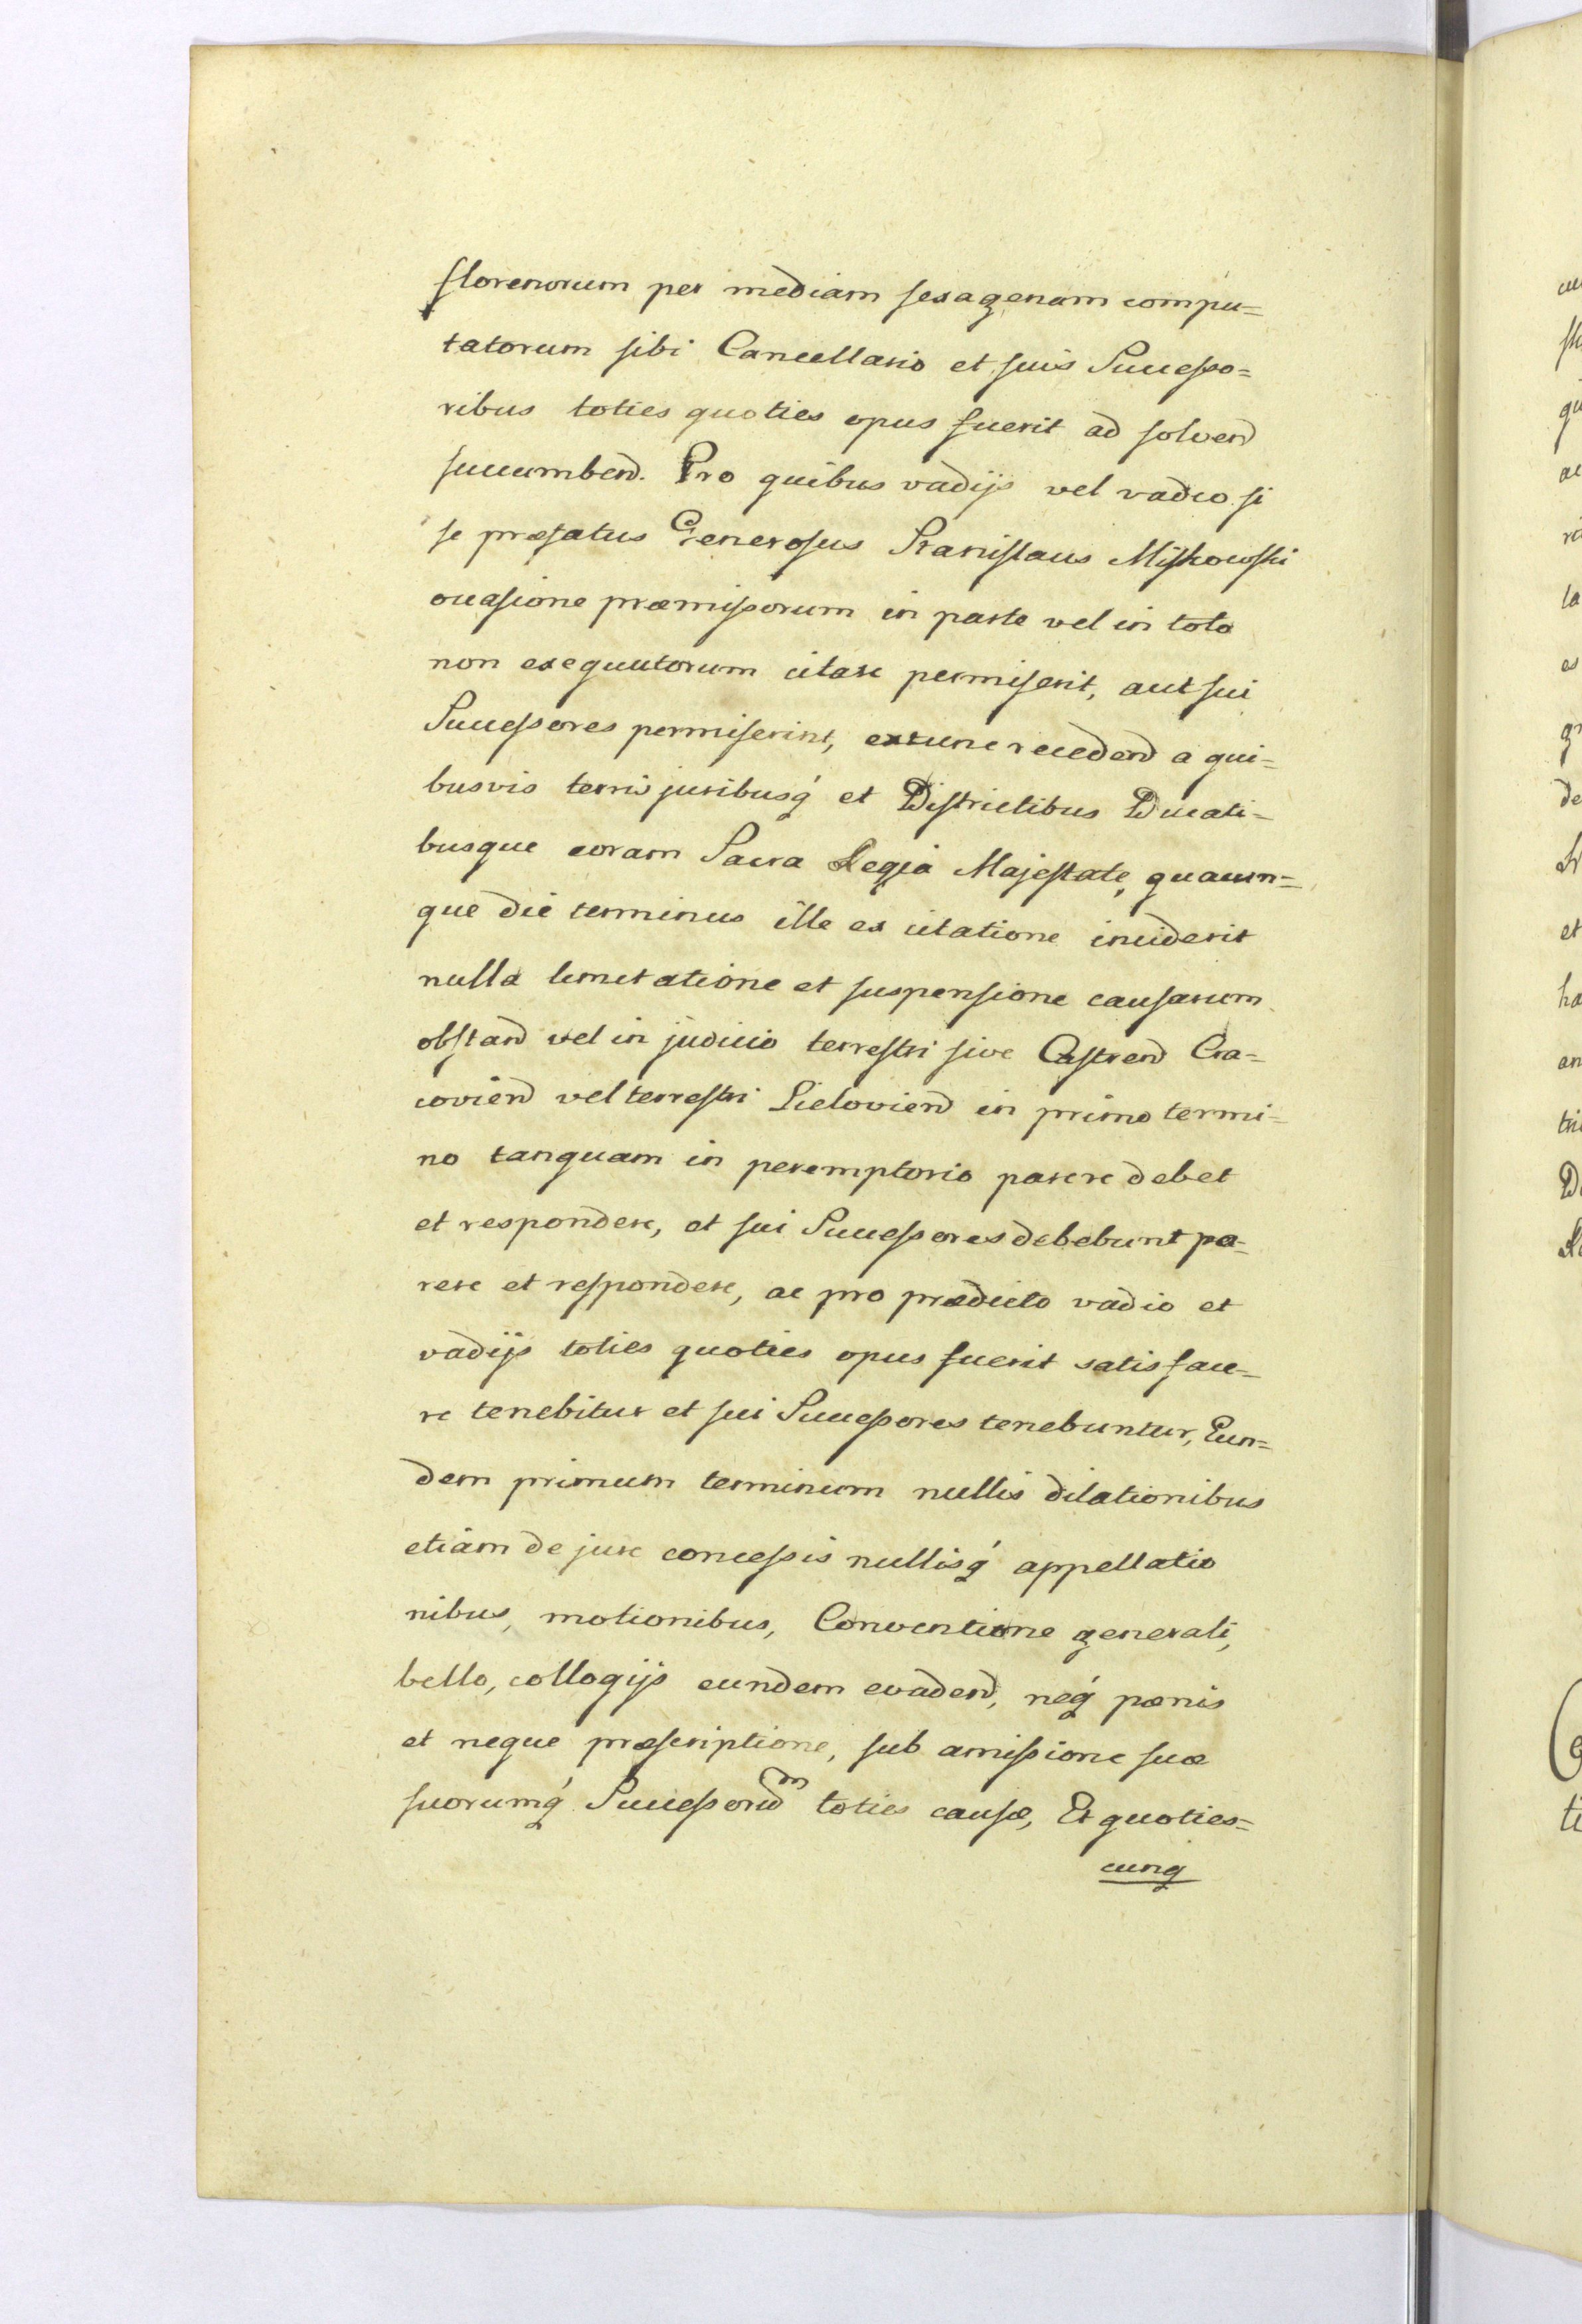 florenorum per mediam sexagenam compu=
tatorum sibi Cancellario et suis Successo=
ribus toties quoties opus fuerit ad solvend
succumbend. Pro quibus vadijs vel vadio si
se præfatus Generosus Stanislaus Miskowski
occasione præmissorum in parte vel in toto
non exequutorum citare permiserit, aut sui
Successores permiserint, extunc recedend a qui=
busvis terris juribusq́ et Districtibus Ducati=
busque coram Sacra Regia Majestate, quacun=
que die terminus ille ex citatione inciderit
nulla limitatione et suspensione causarum
obstand vel in judicio terrestri sive Castrend Cra=
coviend vel terrestri Leloviend in primo termi=
no tanquam in peremptorio parere debet
et respondere, et sui Successores debebunt pa=
rere et respondere, ac pro prædicto vadio et
vadijs toties quoties opus fuerit satisface=
re tenebitur et sui Successores tenebuntur, Eun=
dem primum terminum nullis dilationibus
etiam de jure concessis nullisq́ appellatio
nibus, motionibus, Conventione generali,
bello, colloqijs eundem evadend, neq́ pœnis
et neque præscriptione, sub amissione suæ
suorumq́ Successorum toties causæ, Et quoties=
cunq